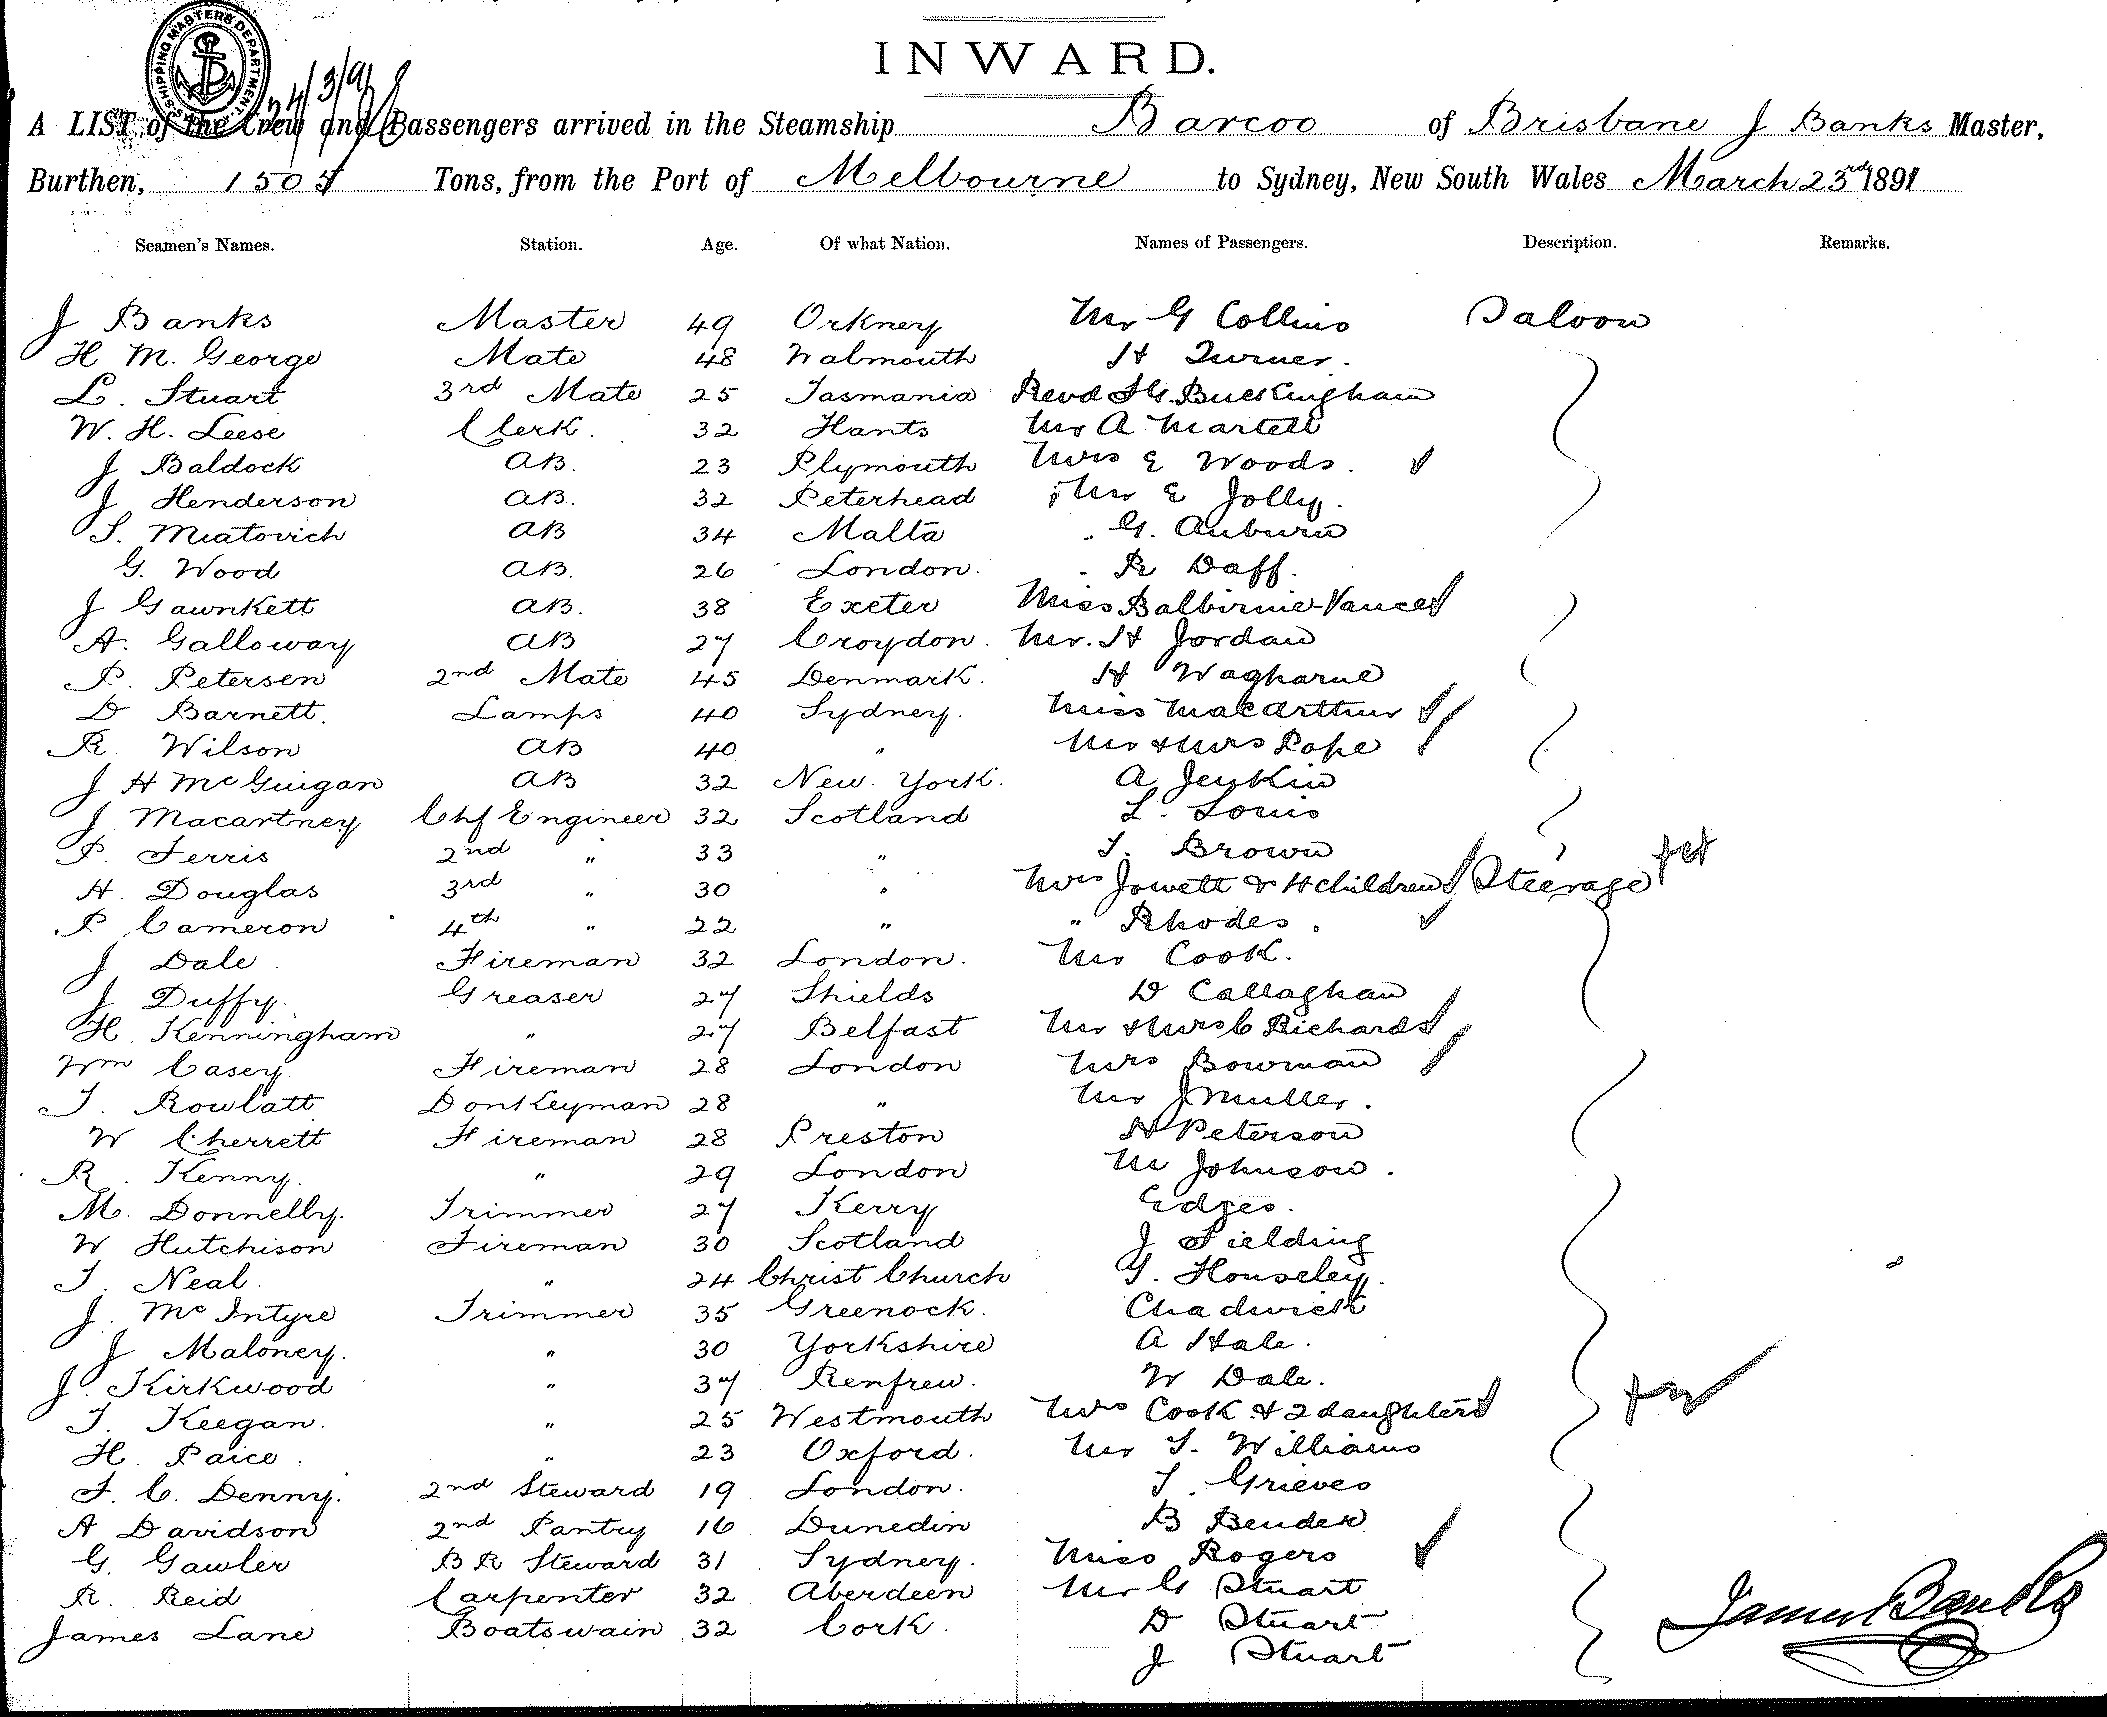 SHIPPING MASTERS DEPARTMENT.
24/3/91
INWARD.
A LIST of the Crew and Passengers arrived in the Steamship Barcoo of Brisbane J Banks Master,
Burthen, 1505 Tons, from the Port of Melbourne to Sydney, New South Wales March 23rd 1891
Seamen's Names. Station. Age. Of what Nation. Names of Passengers. Description. Remarks.
J Banks Master 49 Orkney Mr G Collins Saloon
H M. George Mate 48 Walmouth H Turner.
L. Stuart 3rd Mate 25 Tasmania Revd Buckingham
W. H. Leese Clerk. 32 Hants Mr A Martell
J Baldock AB. 23 Plymouth Mrs E Woods.
J Henderson AB. 32 Peterhead Mr E Jolly.
S. Miatovich AB 34 Malta G. Auburn
G. Wood AB. 26 London. R Daff.
J Gawnkett AB. 38 Exeter Miss Balbirnie-Vance
A. Galloway AB 27 Croydon. Mr. H Jordan
P. Petersen 2nd Mate 45 Denmark. H Wagharne
D Barnett. Lamps 40 Sydney. Miss Macarthur
R. Wilson AB 40 " Mr & Mrs Pope
J H McGuigan AB 32 New. York. A Jenkin
J Macartney Chf Engineer 32 Scotland L. Louis
P. Ferris 2nd " 33 " T. Brown
H. Douglas 3rd " 30 " Mrs Jowett & 4 children Steerage
P. Cameron 4th " 22 " " Rhodes.
J Dale Fireman 32 London. Mr Cook.
J Duffy. Greaser 27 Shields D Callaghan
H. Kenningham " 27 Belfast Mr & Mrs C Richards
Wm Casey Fireman 28 London Mrs Bowman
T. Rowlatt Donkeyman 28 " Mr J Muller.
W Cherrett Fireman 28 Preston A Peterson
R. Kenny. " 29 London M Johnson.
M. Donnelly. Trimmer 27 Kerry Edges.
W Hutchison Fireman 30 Scotland J Fielding
T. Neal. " 24 Christ Church G. Houseley.
J. McIntyre Trimmer 35 Greenock. Chadwick
J Maloney. " 30 Yorkshire A Hale.
J. Kirkwood " 37 Renfrew. W Dale.
T. Keegan. " 25 Westmouth Mrs Cook & 2 daughters
H. Paice. " 23 Oxford. Mr T. Williams
F. C. Denny. 2nd Steward 19 London. T. Grieves
A Davidson 2nd Pantry 16 Dunedin B Bender
G. Gawler B R Steward 31 Sydney. Miss Rogers
R. Reid Carpenter 32 Aberdeen Mr G Stuart
James Lane Boatswain 32 Cork. D Stuart
J Stuart
James Banks